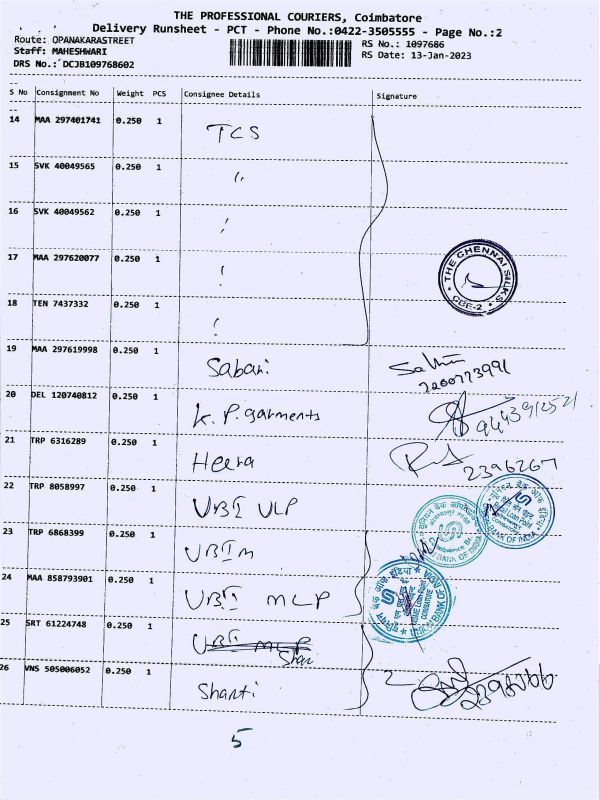 THE PROFESSIONAL COURIERS, Coimbatore
Delivery Runsheet - PCT - Phone No.:0422-3505555 - Page No.:2
Route: OPANAKARASTREET RS No.: 1097686
Staff: MAHESHWARI RS Date: 13-Jan-2023
DRS No.: DCJB109768602
S No Consignment No Weight PCS Consignee Details Signature
14 MAA 297401741 0.250 1 TCS
15 SVK 40049565 0.250 1 "
16 SVK 40049562 0.250 1
17 MAA 297620077 0.250 1
THE CHENNAI SILKS
CBE-2
18 TEN 7437332 0.250 1
19 MAA 297619998 0.250 1 Sabari
20 DEL 120740812 0.250 1 K.P. garments
21 TRP 6316289 0.250 1 Heera
2396267
22 TRP 8058997 0.250 1 UBI ULP
23 TRP 6868399 0.250 1 UBI M
24 MAA 858793901 0.250 1 UBI MLP
25 SRT 61224748 0.250 1
26 VNS 505006052 0.250 1 Shanti
5